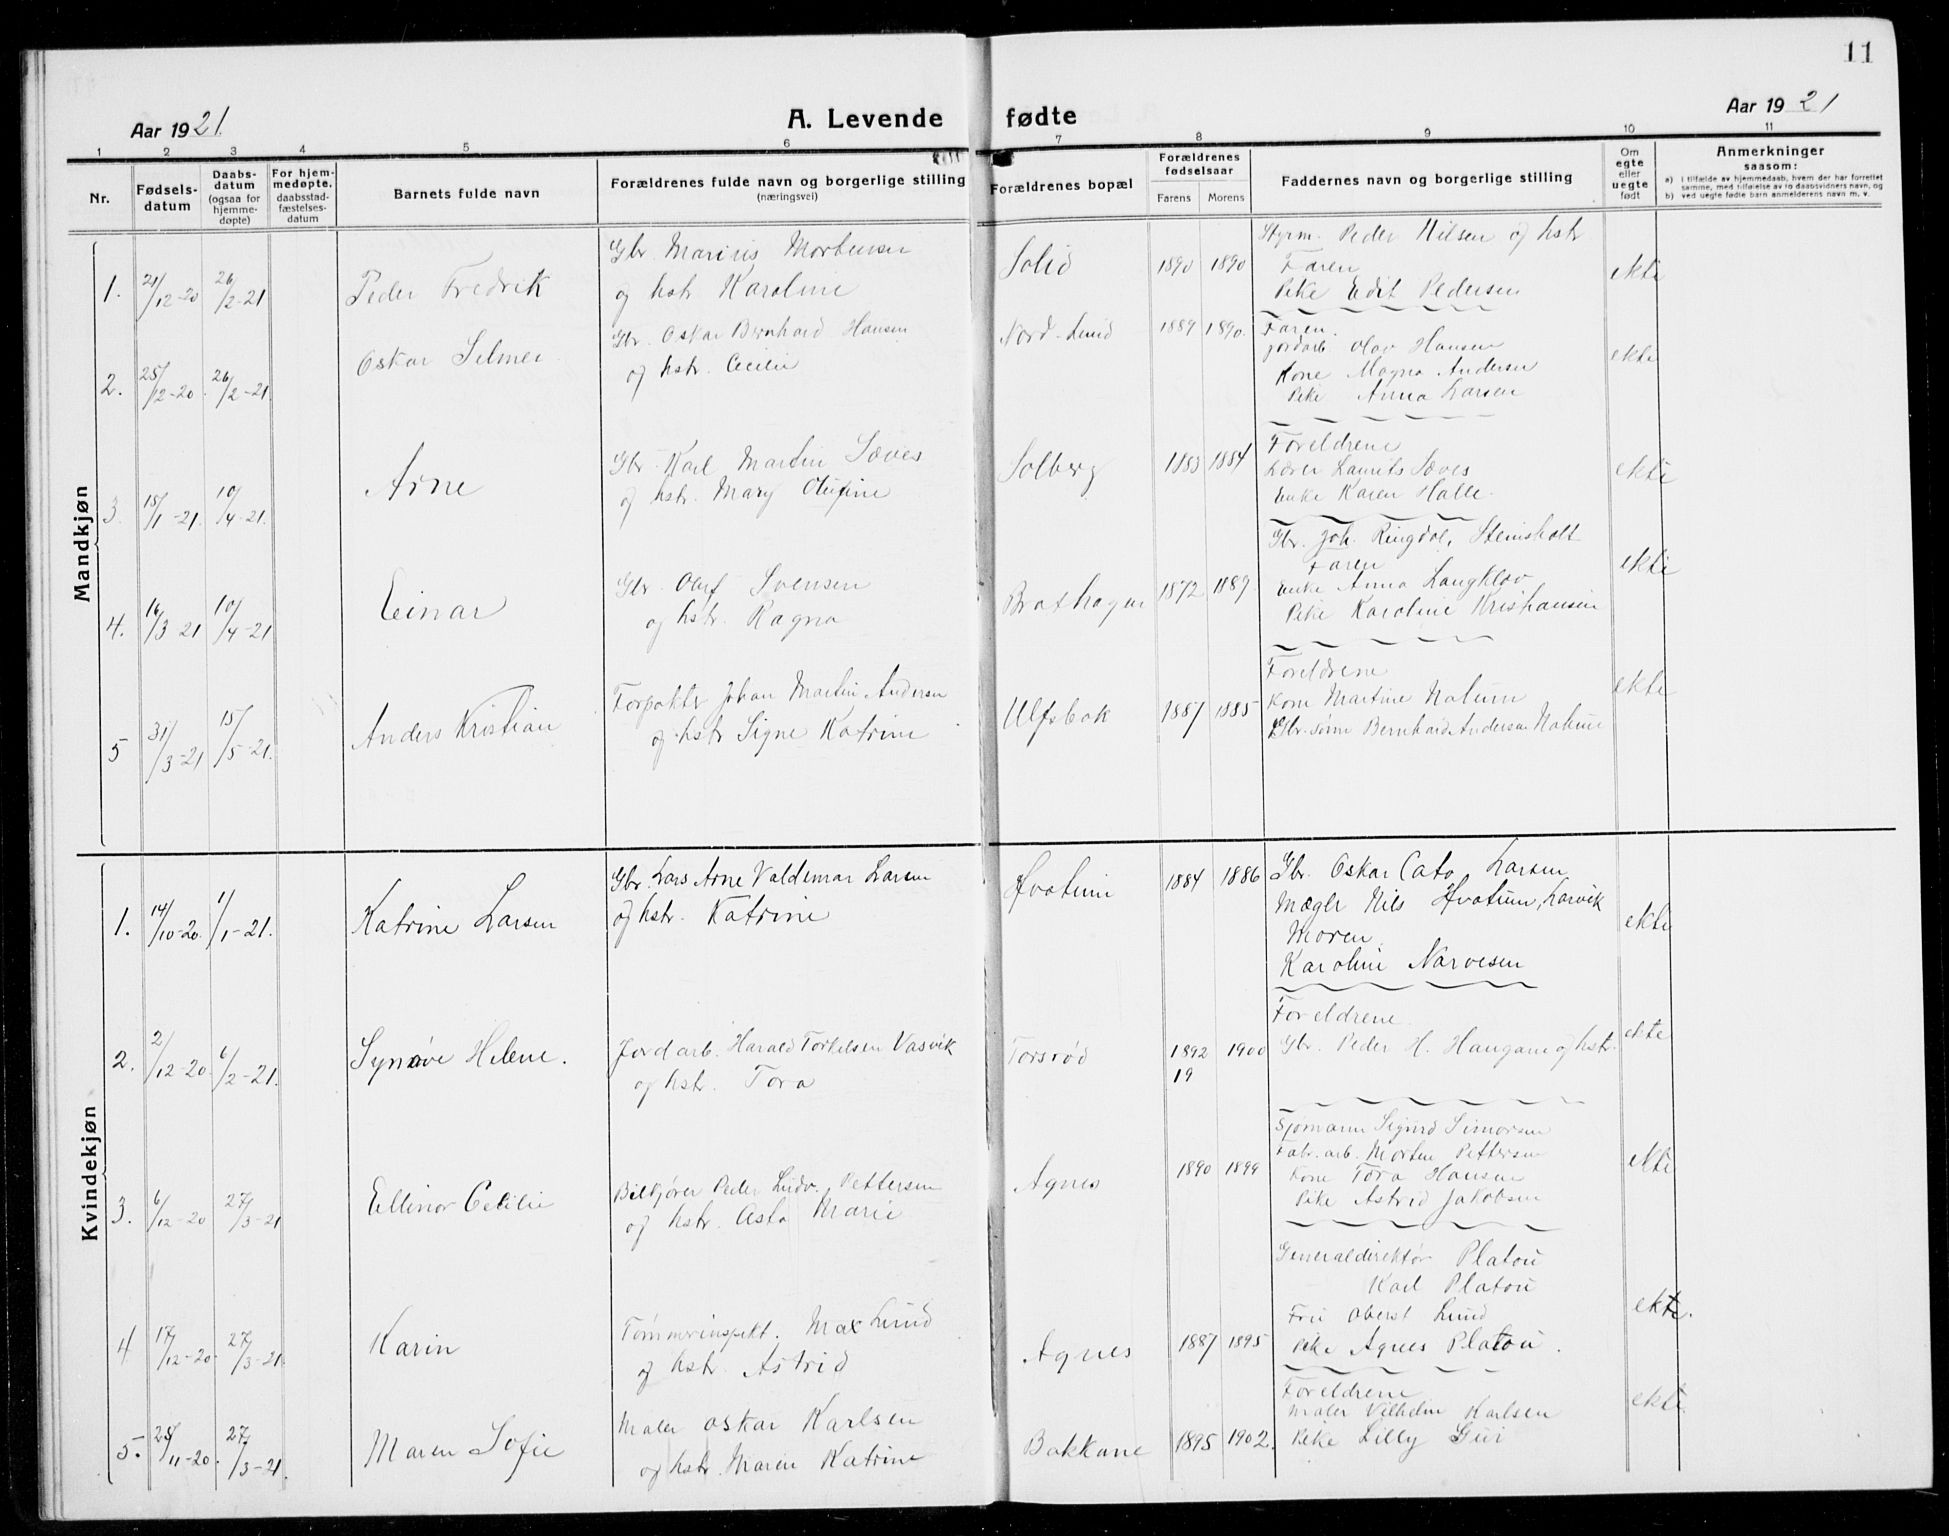 11
Aar 1921.
A. Levende fødte
Aar 1921
1 2 3 4 5 6 7 8 9 10 11
Nr.
Fødsels-datum
Daabs-datum (ogsaa for hjemme-døpte)
For hjem-medøpte. daabsstad-fæstelses-datum
Barnets fulde navn
Forældrenes fulde navn og borgerlige stilling
(næringsvei)
Forældrenes bopæl
Forældrenes fødselsaar
Farens Morens
Faddernes navn og borgerlige stilling
Om egte eller uegte født
Anmerkninger
saasom:
a) i tilfælde av hjemmedaab, hvem der har forrettet
samme, med tilføielse av to daabsvidners navn, og
b) ved uegte fødte barn anmelderens navn m. v.
Mandkjøn
1. 21/12-20 26/2-21 Peder Fredrik
Gbr. Marius Mortensen
og hstr Karoline
Solid 1890 1890
Styrm. Peder Nilsen og hstr
Faren
Pike Edit Pedersen
ekte
2. 25/12-20 26/2-21 Oskar Selmer
Gbr. Oskar Bernhard Hansen
og hstr. Cecilie
Nord-Lund 1889 1890.
Faren.
jordarb. Olav Hansen
Kone Magna Andersen
Pike Anna Larsen
ekte
3. 15/1-21. 10/4-21. Arne
Gbr. Karl Martin Sæves
og hstr. Mary Olufine
Solberg 1883 1884
Foreldrene
Lærer Laurits Sæves
Enke Karen Halle.
ekte
4. 16/3-21 10/4-21 Einar
Gbr. Oluf Svensen
og hstr. Ragna
Brathagen 1872 1889
Gbr. Joh. Ringdal, Steinsholt
Faren
Enke Anna Langklov
Pike Karoline Kristiansen
ekte
5 31/3-21 15/5-21. Anders Kristian
Forpakter Johan Martin Andersen
og hstr Signe Katrine
Ulfsbak 1887 1885
Foreldrene
Kone Martine Nalum
Gbr. sønn Bernhard Andersen Nalum
ekte
Kvindekjøn
1. 14/10-20. 1/1-21. Katrine Larsen
Gbr. Lars Arne Valdemar Larsen
og hstr. Katrine
Hvatum 1884 1886
Gbr. Oskar Cato Larsen
Mægler Nils Hvatum, Larvik
Moren
Karoline Narvesen
ekte
2. 2/12-20. 6/2-21. Synøve Helene.
Jordarb. Harald Torkelsen Vasvik
og hstr. Tora
Torsrød 1892 1900
19
Foreldrene
Gbr. Peder H. Haugane og hstr.
ekte
3. 6/12-20 27/3-21 Ellinor Cecilie
Bilkjører Peder Ludv. Pettersen
og hstr. Asta Marie
Agnes 1890 1899
Sjømann Sigurd Simonsen
Fabr. arb. Morten Pettersen
Kone Tora Hansen
Pike Astrid Jakobsen
ekte
4 17/12-20. 27/3-21. Karin
Tømmerinspekt. Max Lund
og hstr. Astrid
Agnes 1887 1895
Generaldirektør Platou
Karl Platou
Fru Oberst Lund
Pike Agnes Platou.
ekte.
5. 25/11-20. 27/3-21. Maren Sofie
Maler Oskar Karlsen
og hstr. Maren Katrine
Bakkane 1895 1902.
Foreldrene
Maler Vilhelm Karlsen
Pike Lilly Gui
ekte